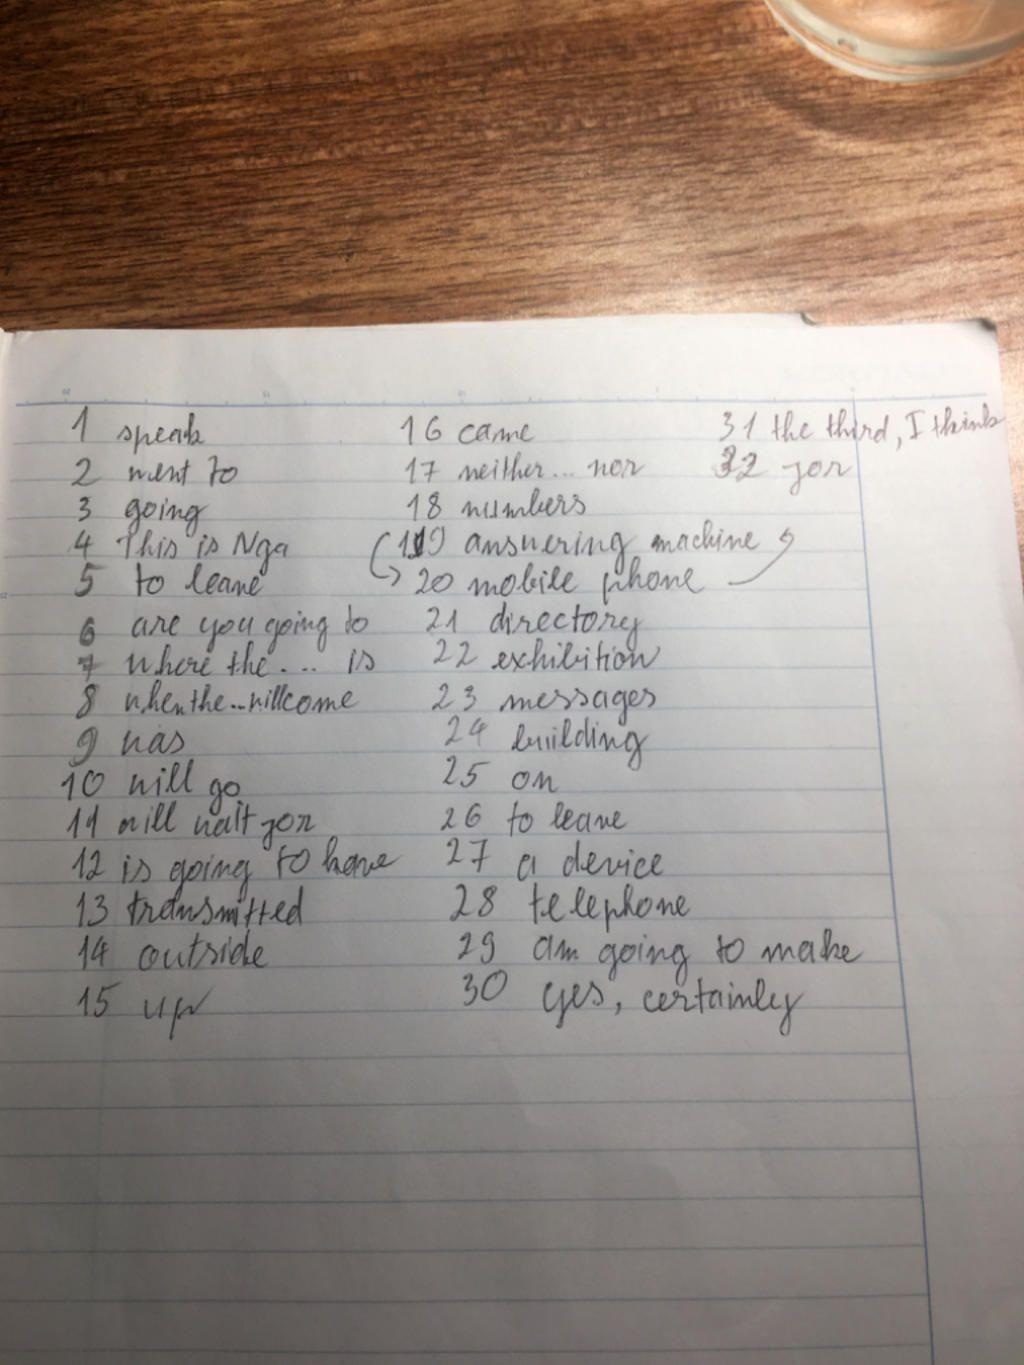 1 speak
2 went to
3 going
4 This is Nga
5 to leave
6 are you going to
7 where the .... is
8 when the ... will come
9 was
10 will go
11 will wait for
12 is going to have
13 transmitted
14 outside
15 up
16 came
17 neither ... nor
18 numbers
19 answering machine
20 mobile phone
21 directory
22 exhibition
23 messages
24 building
25 on
26 to leave
27 a device
28 telephone
29 am going to make
30 yes, certainly
31 the third, I think
32 for